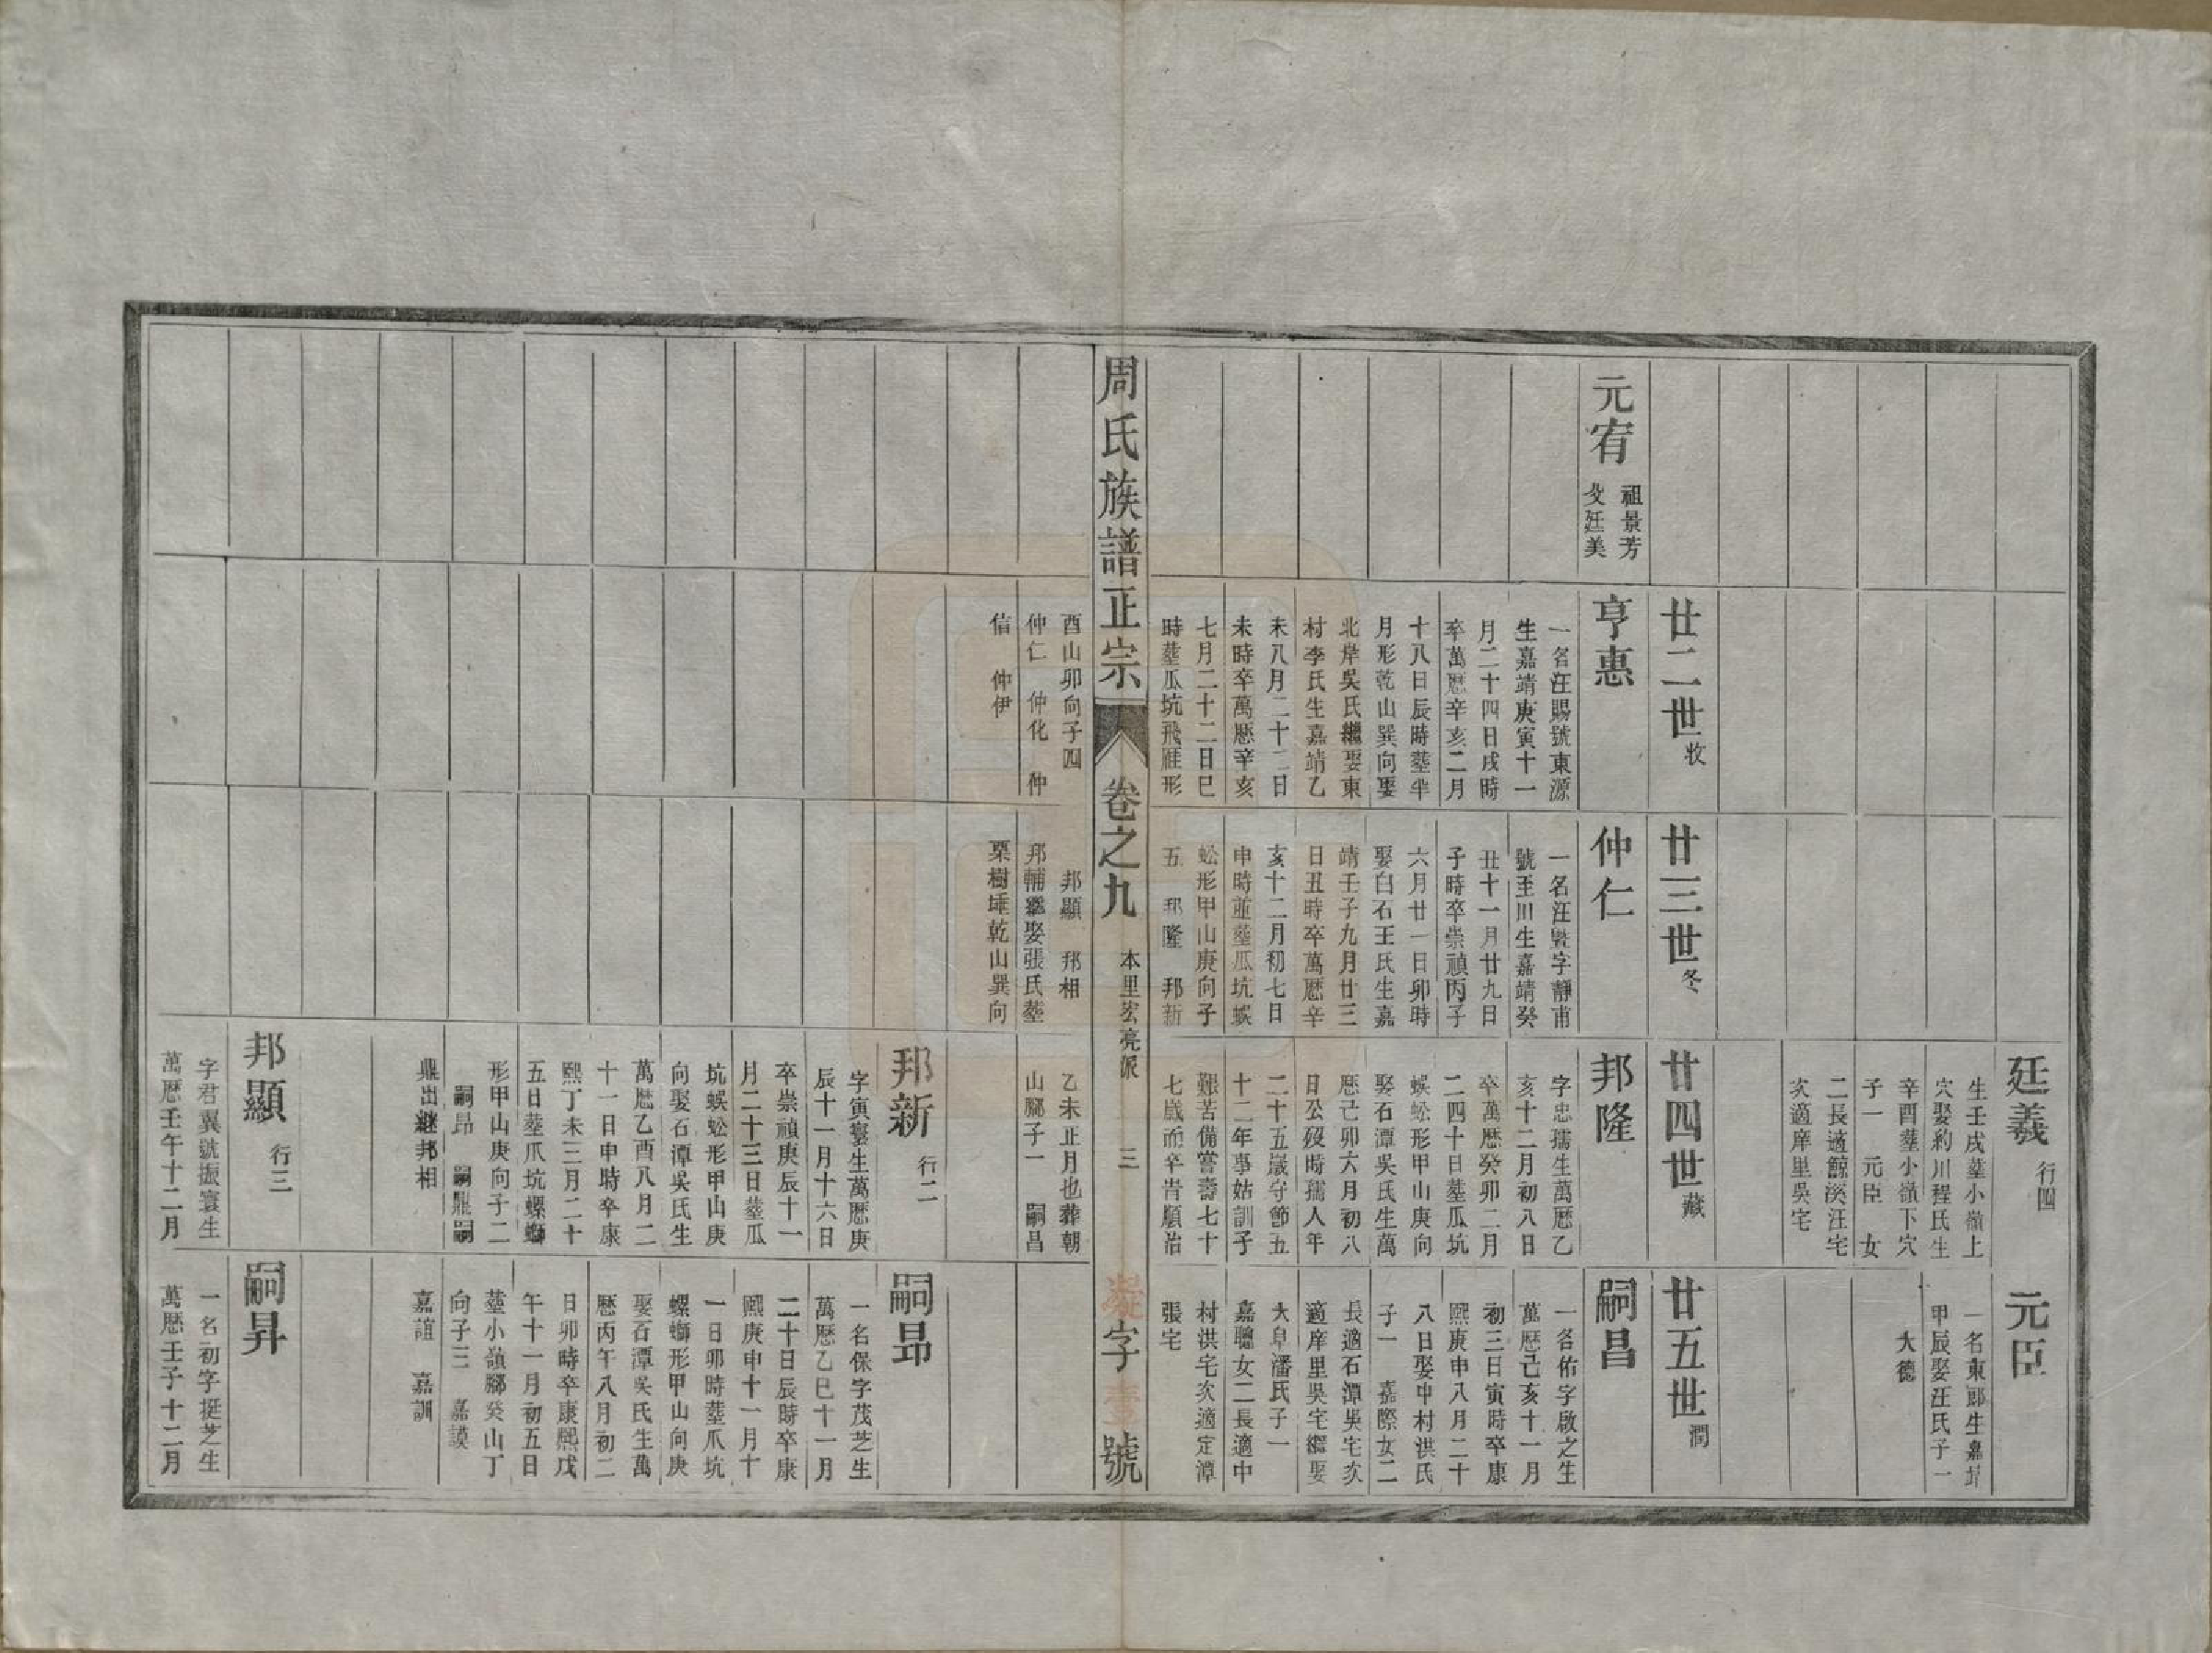 廷義 行四
生壬戌塟小嶺上
穴娶約川程氏生
辛酉塟小嶺下穴
子一 元臣 女
二長適鯨溪汪宅
次適庠里吳宅
元臣
一名東郎生嘉靖
甲辰娶汪氏子一
大德
廿二世 收
廿三世 冬
廿四世 藏
廿五世 潤
元宥 祖景芳
父廷美
亨惠
一名汪賜號東源
生嘉靖庚寅十一
月二十四日戌時
卒萬厯辛亥二月
十八日辰時塟半
月形乾山巽向娶
北岸吳氏繼娶東
村李氏生嘉靖乙
未八月二十二日
未時卒萬厯辛亥
七月二十二日巳
時塟瓜坑飛雁形
酉山卯向子四
仲仁 仲化 仲
信 仲伊
仲仁
一名汪暨字靜甫
號至川生嘉靖癸
丑十一月廿九日
子時卒崇禎丙子
六月廿一日卯時
娶白石王氏生嘉
靖壬子九月廿三
日丑時卒萬厯辛
亥十二月初七日
申時並塟瓜坑蜈
蚣形甲山庚向子
五 邦隆 邦新
邦顯 邦相
邦輔繼娶張氏塟
栗樹埂乾山巽向
邦隆
字忠孺生萬厯乙
亥十二月初八日
卒萬厯癸卯二月
二四十日塟瓜坑
蜈蚣形甲山庚向
娶石潭吳氏生萬
厯己卯六月初八
日公歿時孺人年
二十五嵗守節五
十二年事姑訓子
艱苦備嘗壽七十
七嵗而卒旹順治
乙未正月也葬朝
山腳子一 嗣昌
嗣昌
一名佑字啟之生
萬厯己亥十一月
初三日寅時卒康
熙庚申八月二十
八日娶中村洪氏
子一 嘉際女二
長適石潭吳宅次
適庠里吳宅繼娶
大阜潘氏子一
嘉聰女二長適中
村洪宅次適定潭
張宅
周氏族譜正宗 卷之九 本里宏亮派 三 字壹號
邦新 行二
字寅寰生萬厯庚
辰十一月十六日
卒崇禎庚辰十一
月二十三日塟瓜
坑蜈蚣形甲山庚
向娶石潭吳氏生
萬厯乙酉八月二
十一日申時卒康
熙丁未三月二十
五日塟瓜坑螺螄
形甲山庚向子二
嗣昂 嗣鼎嗣
鼎出繼邦相
嗣昂
一名保字茂芝生
萬厯乙巳十一月
二十日辰時卒康
熙庚申十一月十
一日卯時塟瓜坑
螺螄形甲山向庚
娶石潭吳氏生萬
厯丙午八月初二
日卯時卒康熙戊
午十一月初五日
塟小嶺腳癸山丁
向子三 嘉謨
嘉誼 嘉訓
邦顯 行三
字君翼號振寰生
萬厯壬午十二月
嗣昇
一名初字挺芝生
萬厯壬子十二月